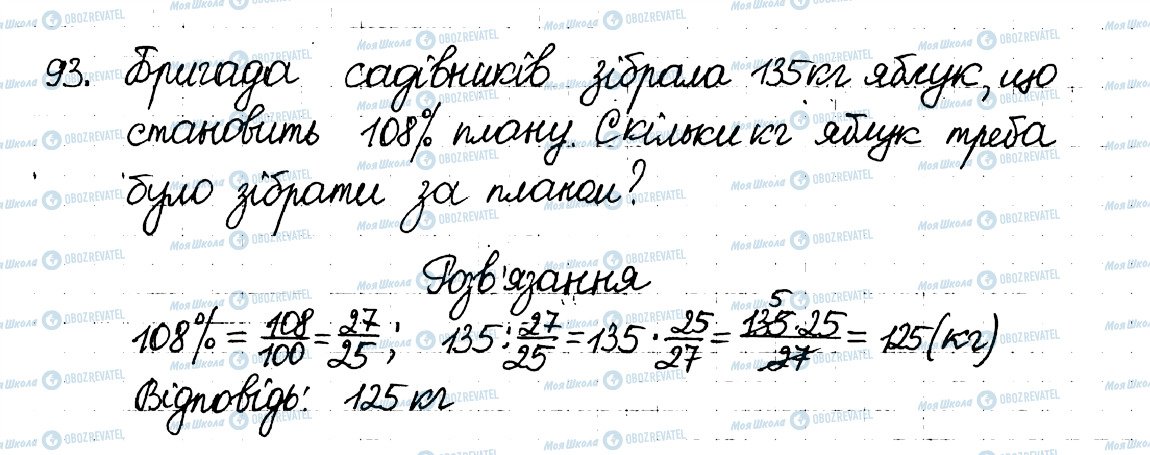 93. Бригада садівників зібрала 135 кг яблук, що
становить 108% плану. Скільки кг яблук треба
було зібрати за планом?
Розв'язання
108% = 108/100 = 27/25; 135 : 27/25 = 135 · 25/27 = 135 · 25/27 = 125 (кг)
5
Відповідь: 125 кг
МояШкола OBOZREVATEL